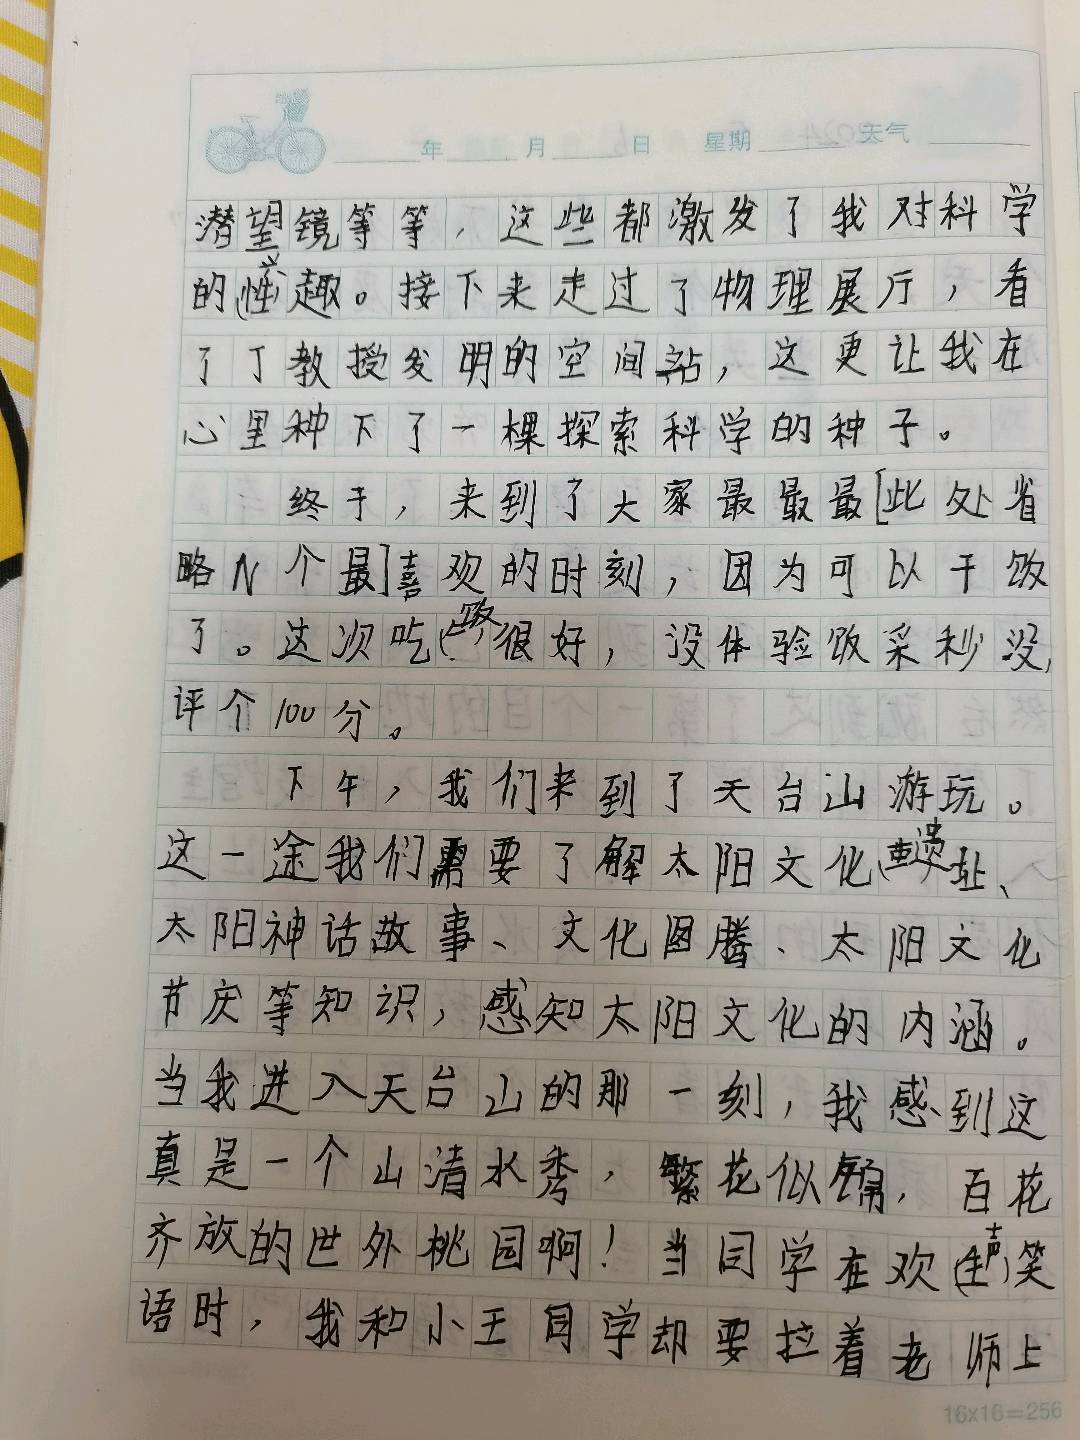 年 月 日 星期 天气
潜望镜等等，这些都激发了我对科学
的兴趣。接下来走过了物理展厅，看
了丁教授发明的空间站，这更让我在
心里种下了一棵探索科学的种子。
终于，来到了大家最最最[此处省
略N个最]喜欢的时刻，因为可以干饭
了。这次吃饭很好，没体验饭菜秒没，
评个100分。
下午，我们来到了天台山游玩。
这一途我们需要了解太阳文化遗址、
太阳神话故事、文化图腾、太阳文化
节庆等知识，感知太阳文化的内涵。
当我进入天台山的那一刻，我感到这
真是一个山清水秀，繁花似锦，百花
齐放的世外桃园啊！当同学在欢声笑
语时，我和小王同学却要拉着老师上
16x16=256